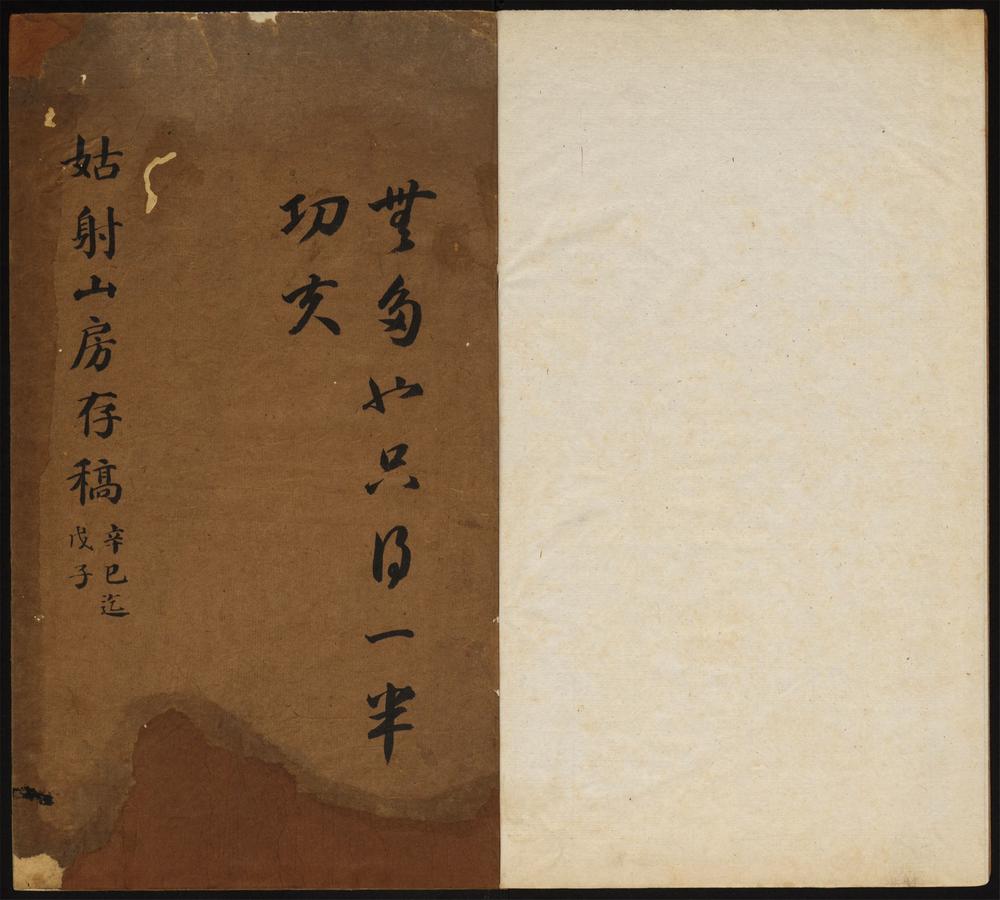 無多只得一半
功亥
姑射山房存稿
辛巳迄
戊子